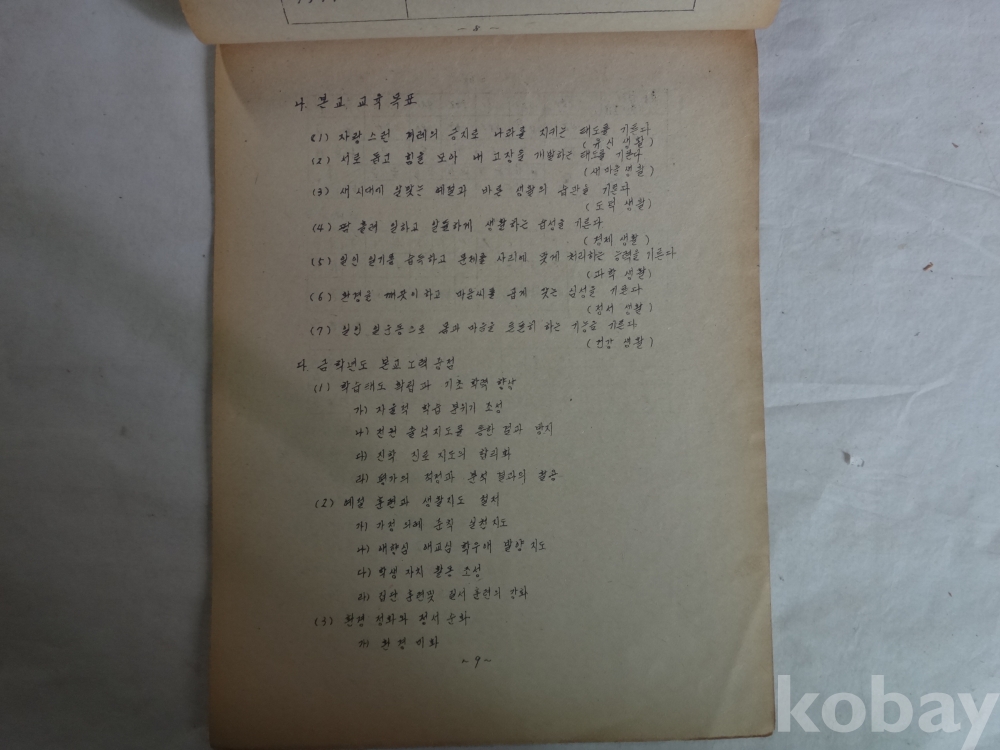 - 8 -
나. 본교 교육목표
(1) 자랑스런 겨레의 긍지로 나라를 지키는 태도를 기른다
(유신 생활)
(2) 서로 돕고 힘을 모아 내 고장을 개발하는 태도를 기른다
(새마을 생활)
(3) 새시대에 알맞는 예절과 바른 생활의 습관을 기른다
(도덕 생활)
(4) 땀 흘려 일하고 알뜰하게 생활하는 습성을 기른다
(경제 생활)
(5) 일인 일기를 습득하고 문제를 사리에 맞게 처리하는 능력을 기른다
(과학 생활)
(6) 환경을 깨끗이하고 마음씨를 곱게 갖는 심성을 기른다
(정서 생활)
(7) 일인 일운동으로 몸과 마음을 튼튼히 하는 기능을 기른다
(건강 생활)
다. 금 학년도 본교 노력중점
(1) 학습태도 확립과 기초 학력 향상
가) 자율적 학습 분위기 조성
나) 전원 출석지도를 통한 결과 방지
다) 진학 진로 지도의 합리화
라) 평가의 적정과 분석 결과의 활용
(2) 예절 훈련과 생활지도 철저
가) 가정 의례 준칙 실천지도
나) 애향심 애교심 학우애 발양 지도
다) 학생 자치 활동 조성
라) 집단 훈련및 질서 훈련의 강화
(3) 환경 정화와 정서 순화
가) 환경 미화
- 9 -
kobay